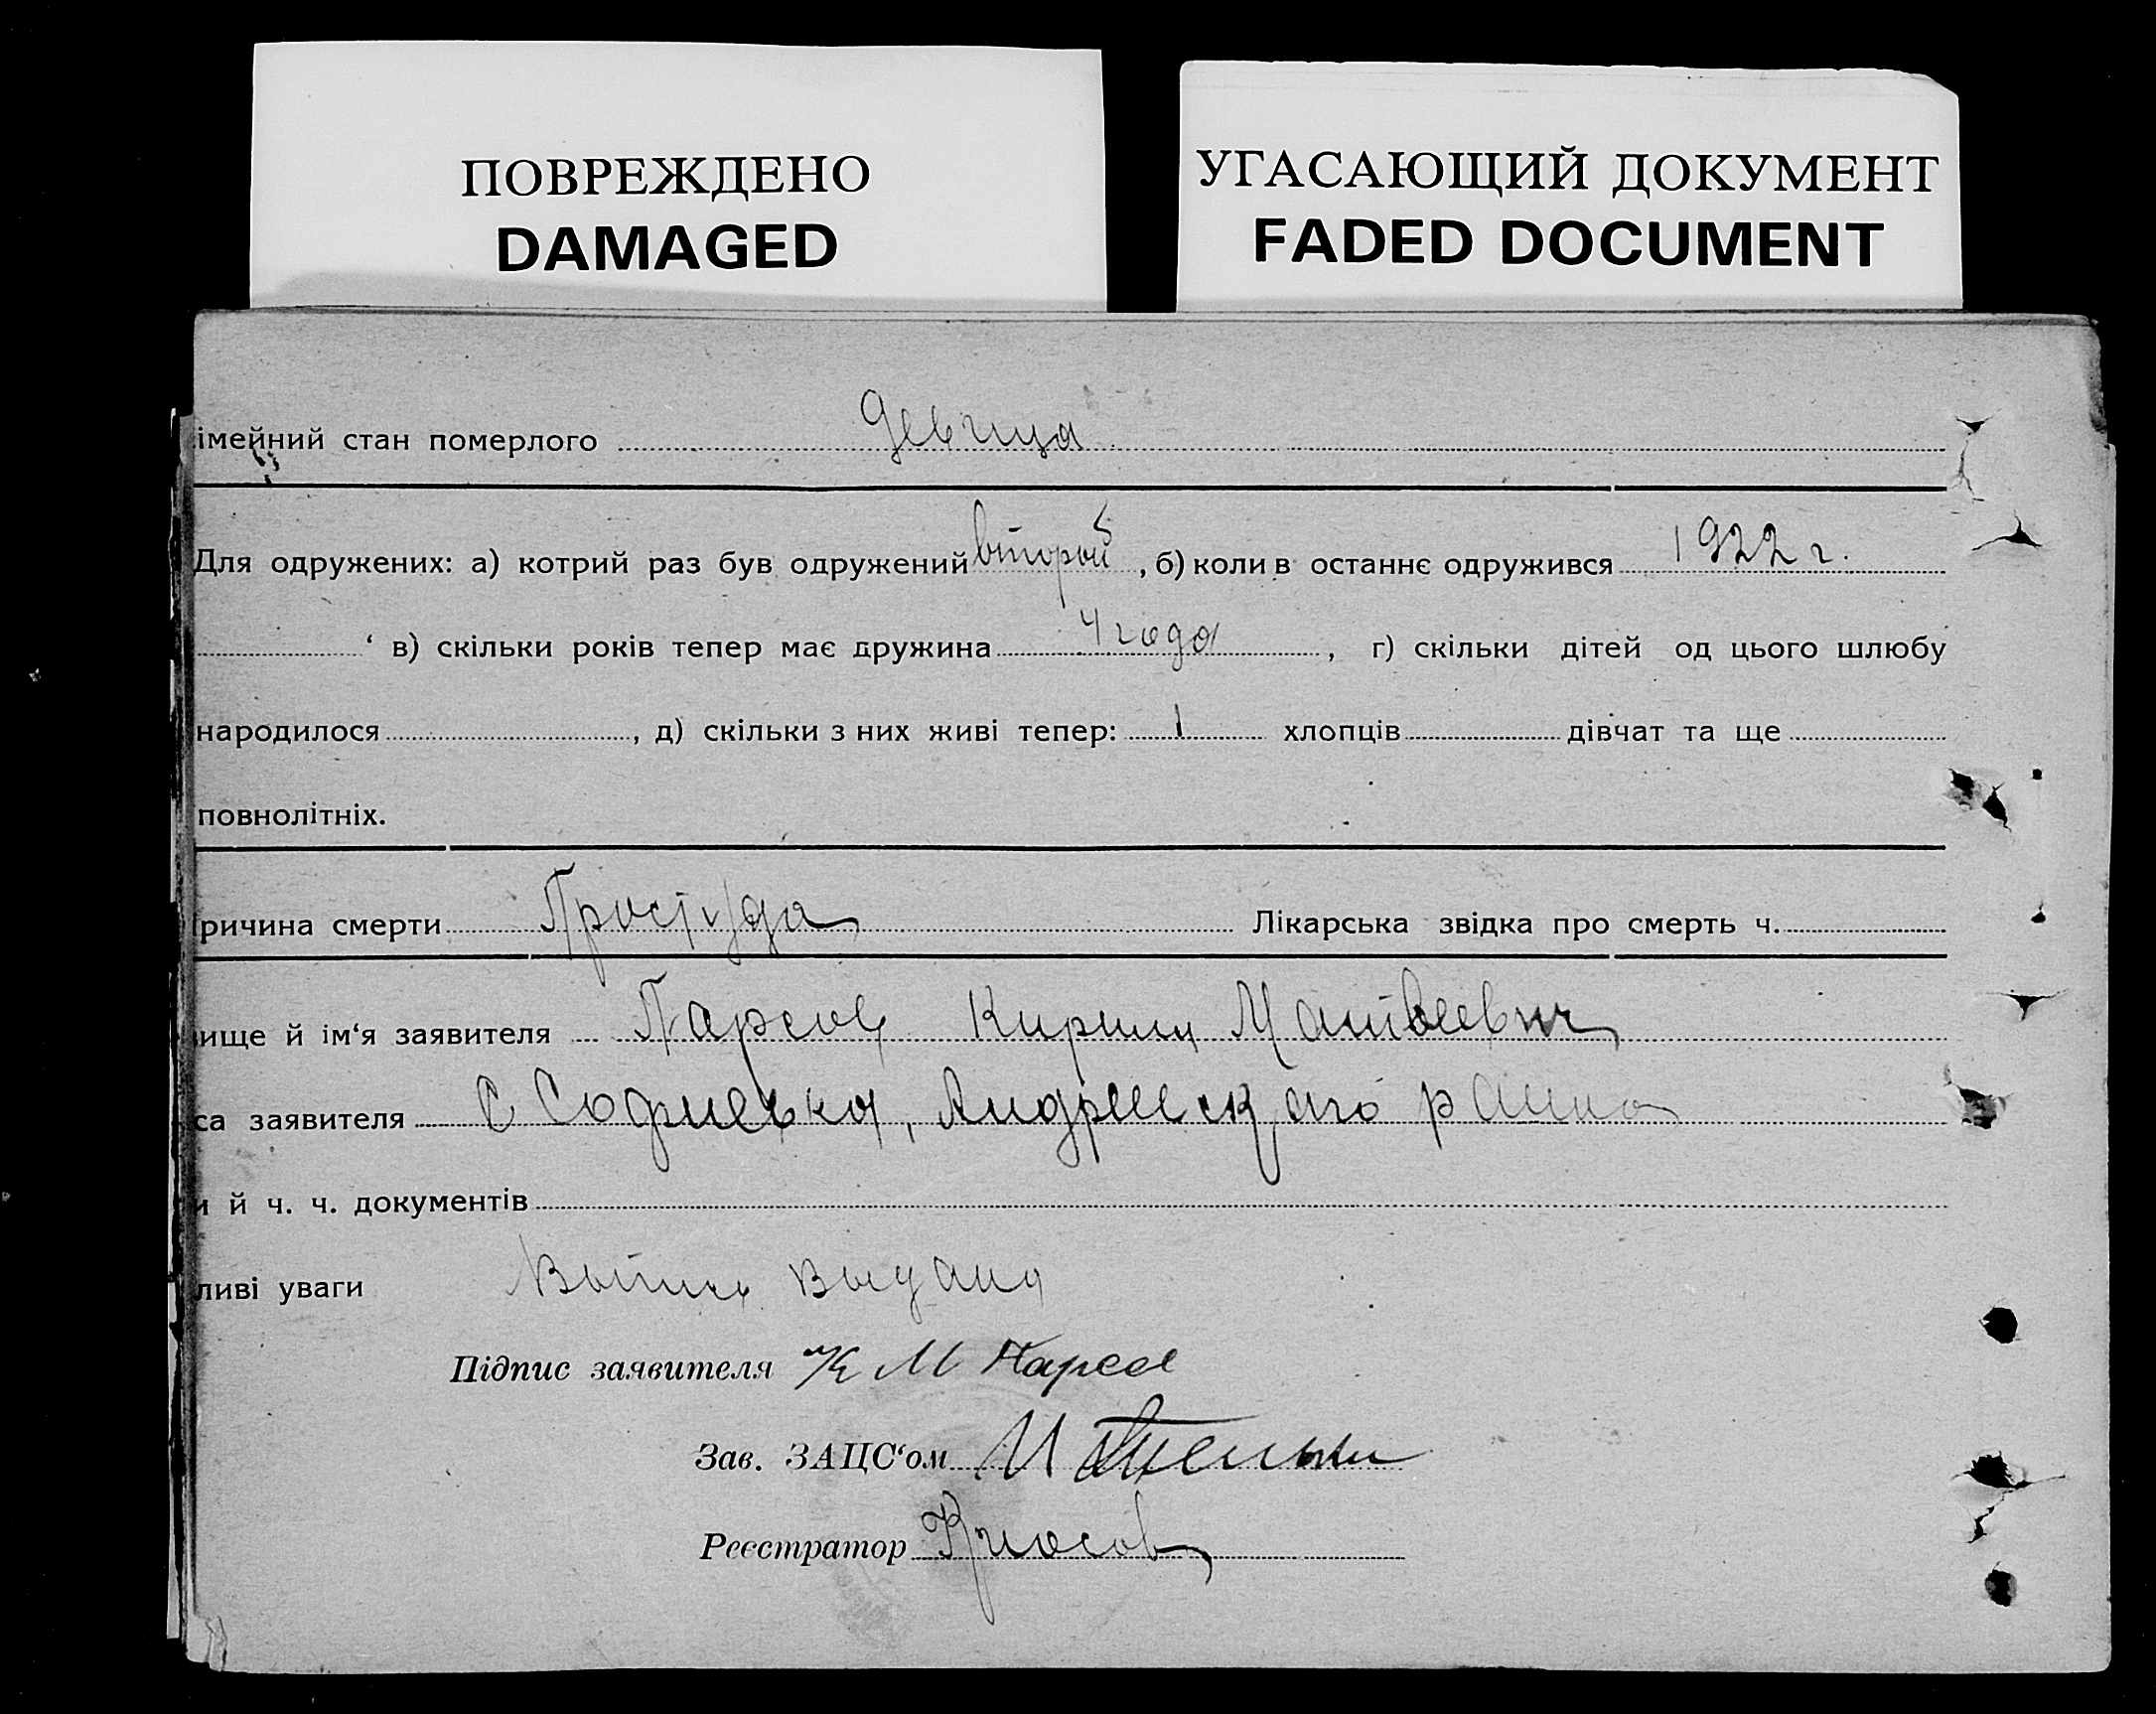 ПОВРЕЖДЕНО
DAMAGED
УГАСАЮЩИЙ ДОКУМЕНТ
FADED DOCUMENT
імейний стан померлого девица
Для одружених: а) котрий раз був одружений второй, б) коли в останнє одружився 1922 г.
‘ в) скільки років тепер має дружина 4 года, г) скільки дітей од цього шлюбу
народилося, д) скільки з них живі тепер: 1 хлопців дівчат та ще
повнолітніх.
ричина смерти Простуда Лікарська звідка про смерть ч.
ище й ім‘я заявителя Кирилл Матвеевич
са заявителя С Софиевка, Андреевского района
и й ч. ч. документів
ливі уваги Выпись выдана
Підпис заявителя К М
Зав. ЗАЦС‘ом И
Реєстратор